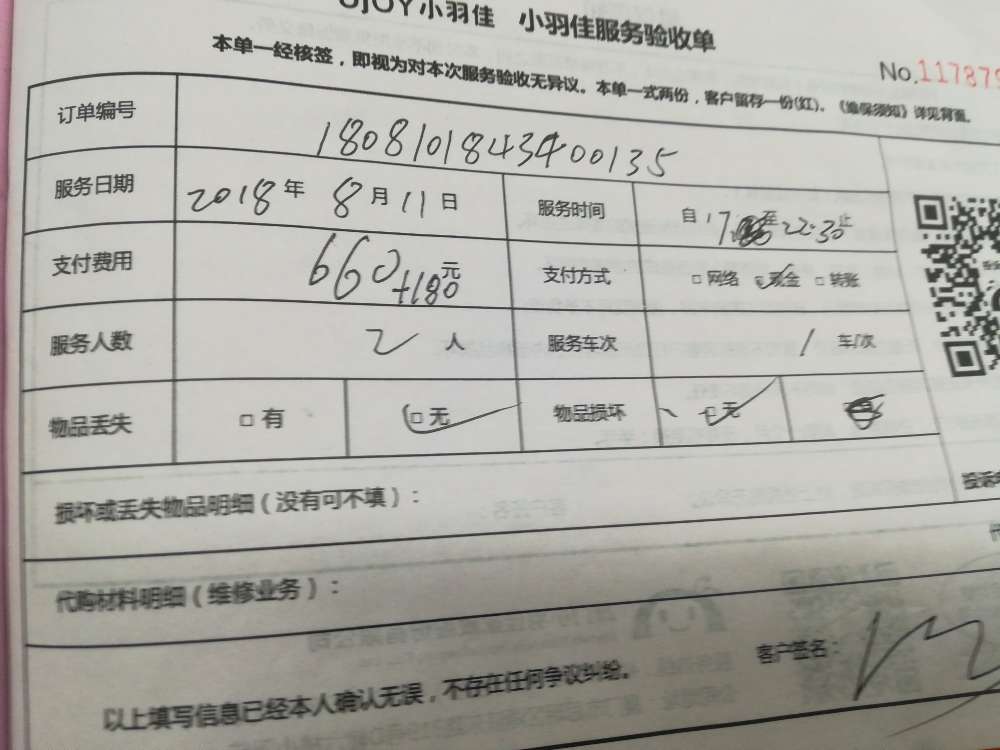 小羽佳 小羽佳服务验收单
本单一经核签，即视为对本次服务验收无异议。本单一式两份，客户留存一份(红)。《维保须知》详见背面。
No.117879
订单编号 1808101843400135
服务日期 2018年 8月11日 服务时间 自17 至22:30止
支付费用 660+180元 支付方式 □网络 ☑现金 □转账
服务人数 2 人 服务车次 1 车/次
物品丢失 □有 ☑无 物品损坏 ☑无
损坏或丢失物品明细（没有可不填）：
代购材料明细（维修业务）：
客户签名：
以上填写信息已经本人确认无误，不存在任何争议纠纷。